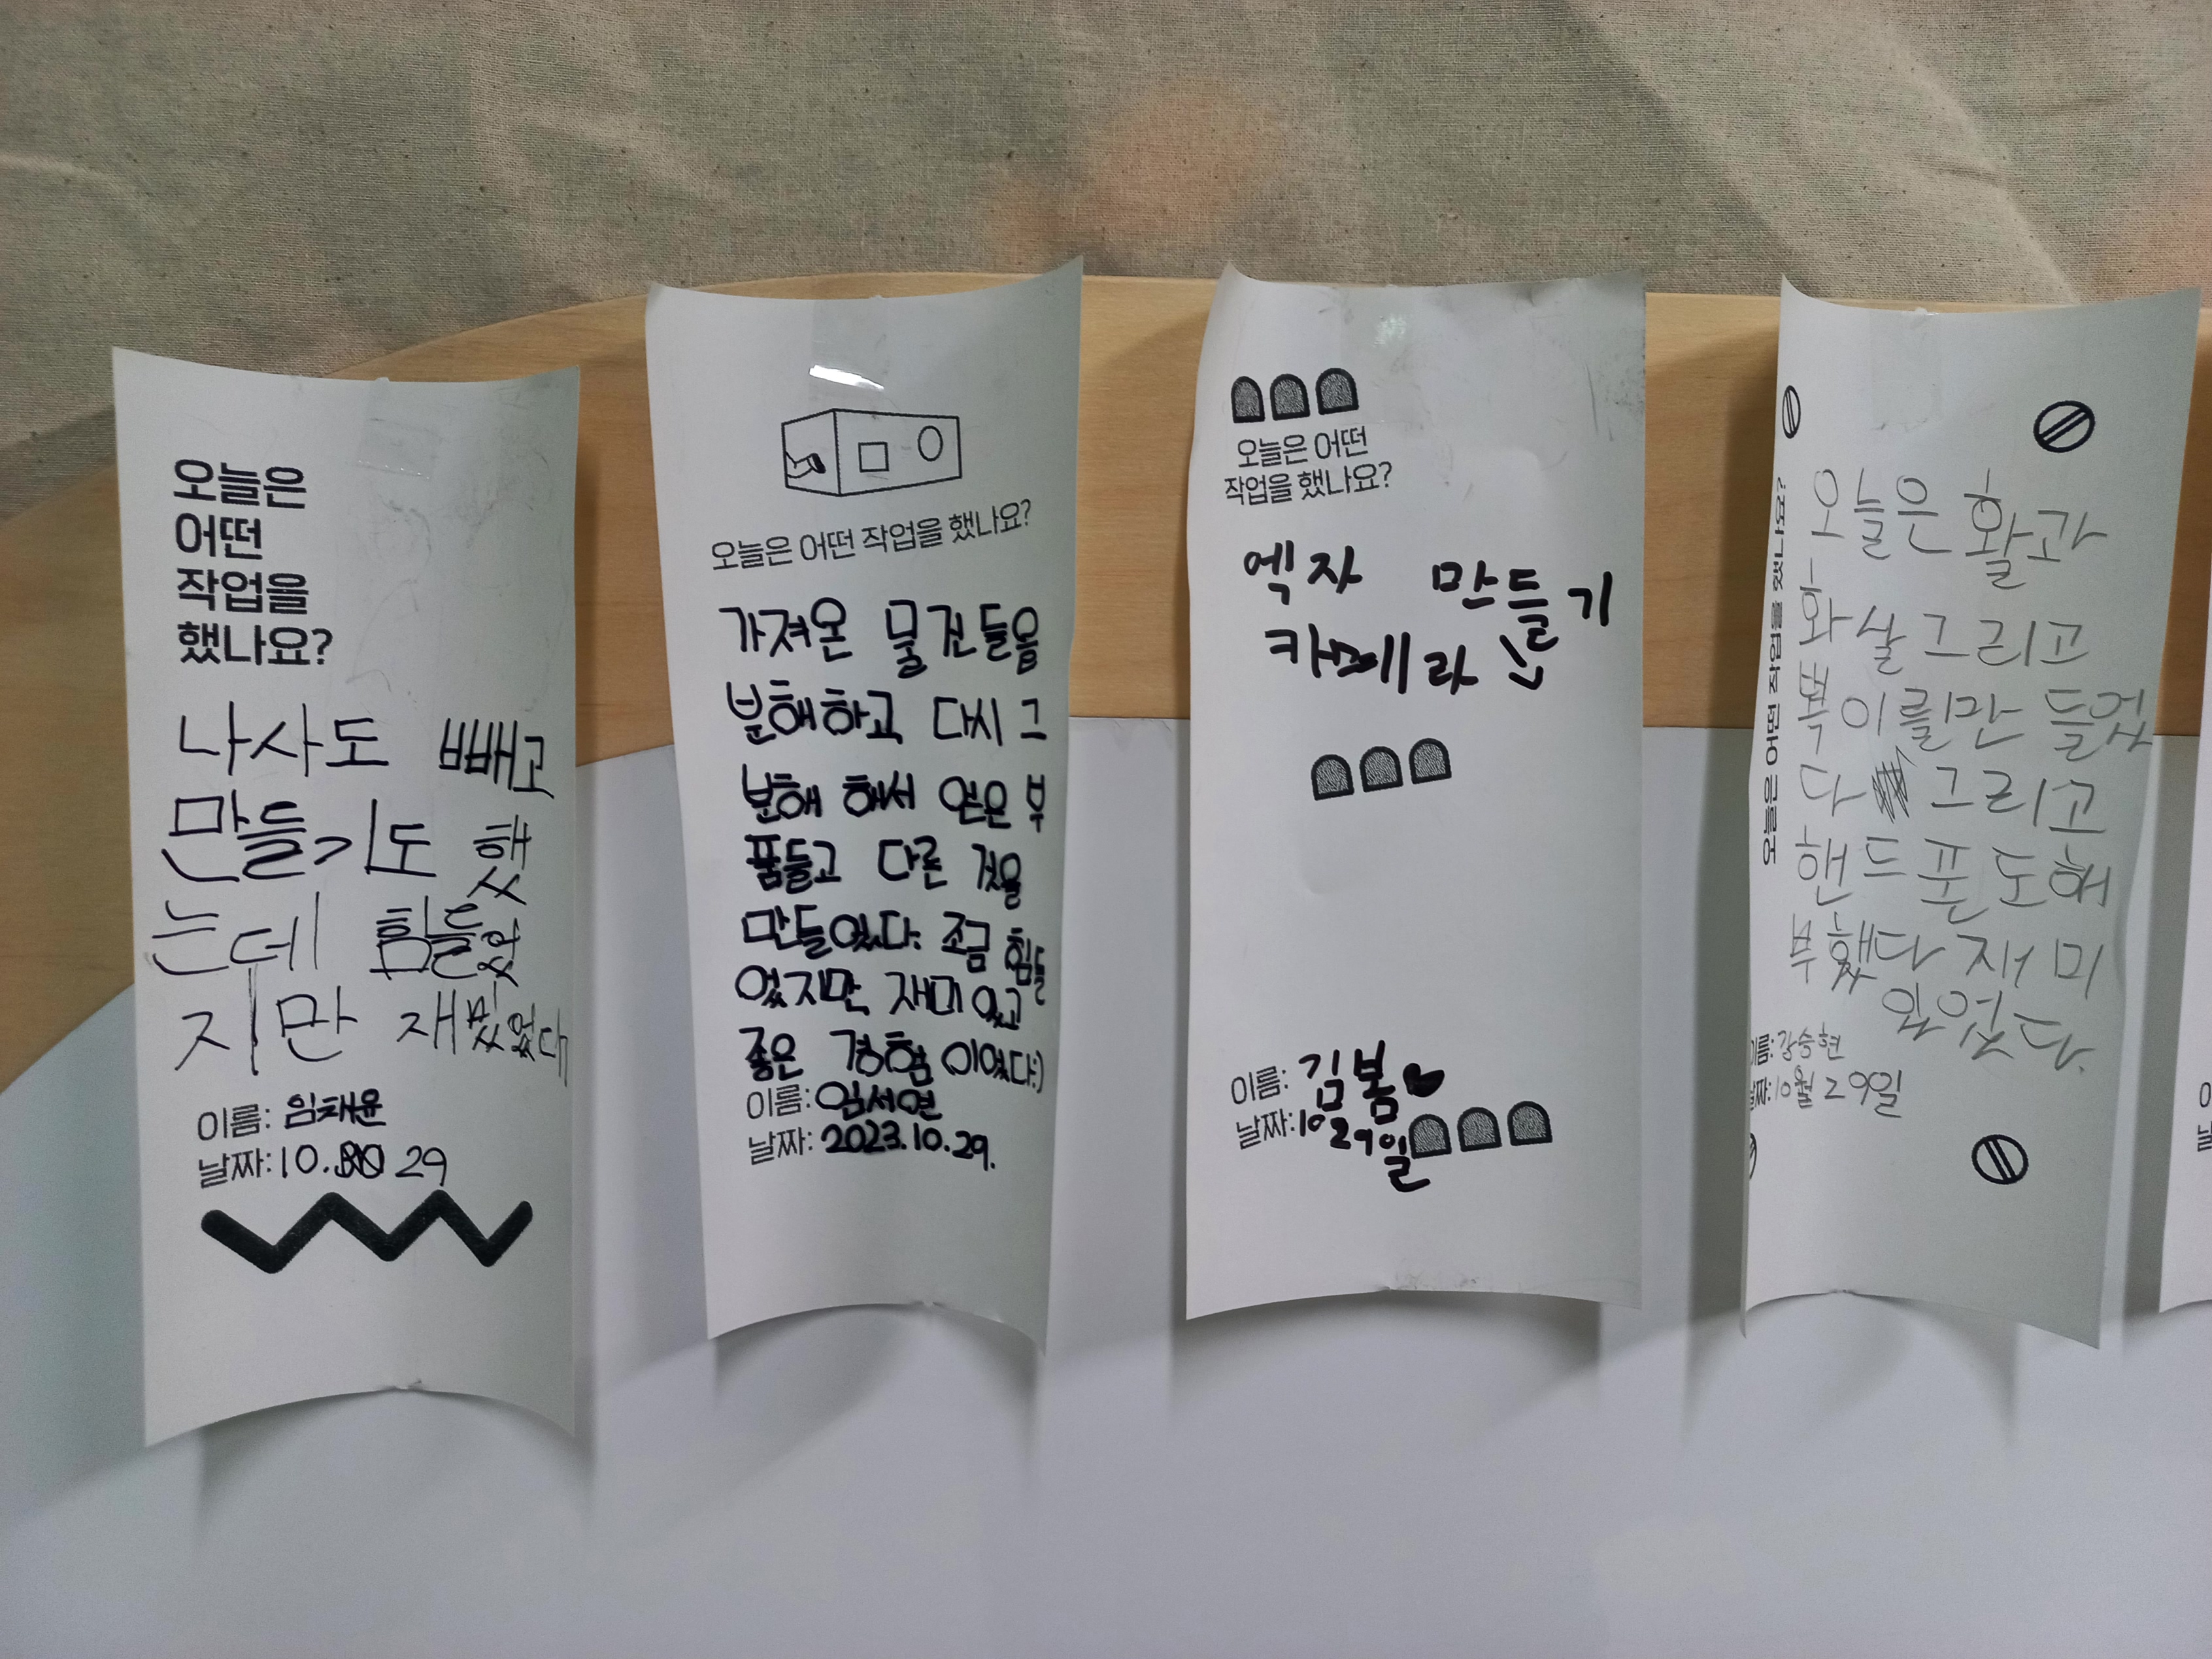 오늘은
어떤
작업을
했나요?
나사도 빼고
만들기도 했
는데 힘들었
지만 재밌었다
이름: 임채윤
날짜: 10. 29
오늘은 어떤 작업을 했나요?
가져온 물건들을
분해하고 다시 그
분해 해서 얻은 부
품들고 다른 것을
만들었다. 조금 힘들
었지만 재미있고
좋은 경험이었다:)
이름: 임서연
날짜: 2023.10.29.
오늘은 어떤
작업을 했나요?
엑자 만들기
카메라
이름: 김봄
날짜: 10 29일
오늘은 어떤 작업을 했나요?
오늘은 활과
화살 그리고
복이를만들었
다 그리고
핸드폰도해
부했다 재미
있었다.
이름: 강승현
날짜: 10월 29일